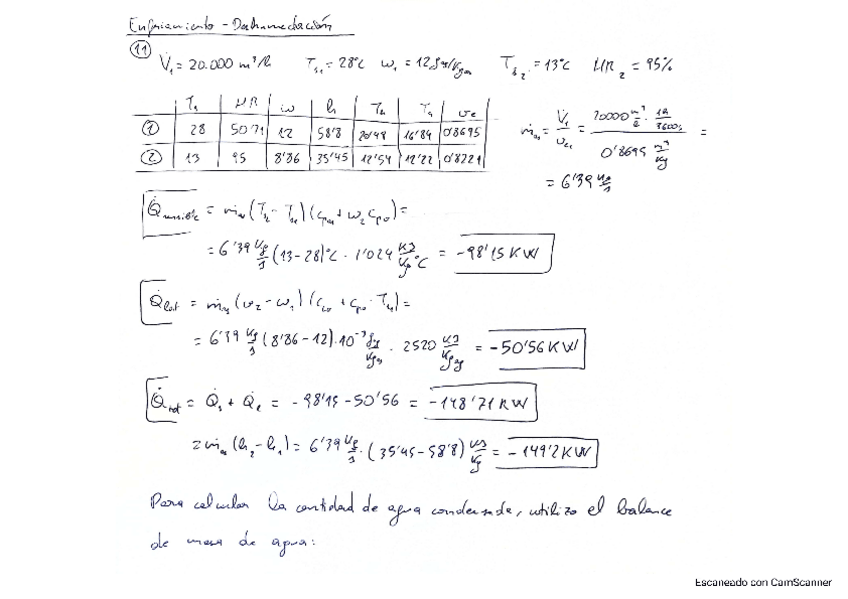 Enfriamiento - Deshumectación
11 V̇₁ = 20.000 m³/h Ts₁ = 28°C w₁ = 12 g/kg Ts₂ = 13°C HR₂ = 95%
Ts HR w h Th Tr ve
① 28 50'71 12 58'8 16'84 0'8695
② 13 95 8'86 35'45 12'54 12'22 0'8221
ṁas = V̇₁ / ve₁ = 20000 m³/h · 1h/3600s / 0'8695 m³/kg =
= 6'39 kg/s
Q̇sensible = ṁas (T₂ - T₁) (cpa + w₂ cpv) =
= 6'39 kg/s (13 - 28)°C · 1'024 KJ/kg°C = -98'15 KW
Q̇lat = ṁas (w₂ - w₁) (cLo + cpv · Ts₁) =
= 6'39 kg/s (8'86 - 12)·10⁻³ · 2520 = -50'56 KW
Q̇tot = Q̇s + Q̇l = -98'15 - 50'56 = -148'71 KW
= ṁas (h₂ - h₁) = 6'39 kg/s · (35'45 - 58'8) KJ/kg = -149'2 KW
Para calcular la cantidad de agua condensada, utilizo el balance
de masa de agua:
Escaneado con CamScanner